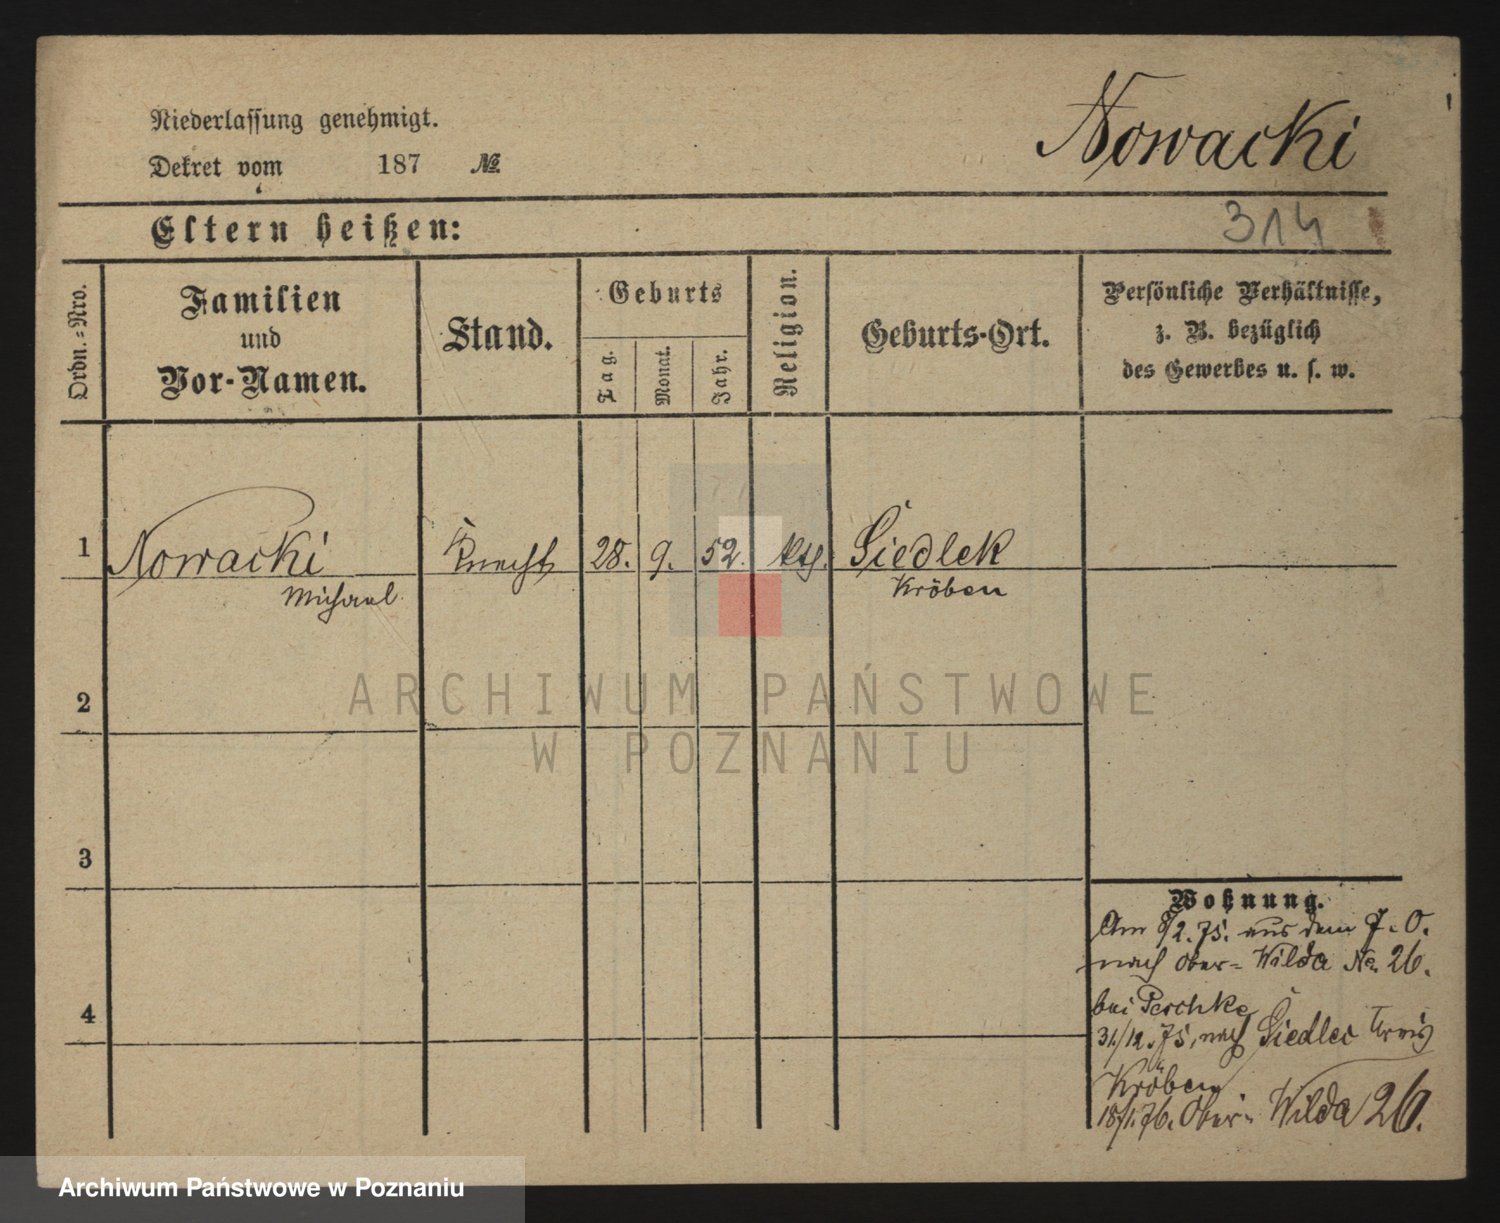 Nowacki
Niederlassung genehmigt.
Dekret vom 187 №
Eltern heißen:
314
Ordn.-Nro.
Familien
und
Vor-Namen.
Stand.
Geburts
Tag.
Monat.
Jahr.
Religion.
Geburts-Ort.
Persönliche Verhältnisse,
z. B. bezüglich
des Gewerbes u. s. w.
1 Nowacki Knecht 28. 9. 52. kth. Siedlek
Michael Kröben
2
ARCHIWUM PAŃSTWOWE
W POZNANIU
3
Wohnung.
Am 8/2. 75. aus dem J. O.
nach Ober-Wilda No. 26.
bei Peschke
4
31/12. 75, nach Siedlec Kreis
Kröben
18/1. 76. Ober-Wilda 26.
Archiwum Państwowe w Poznaniu